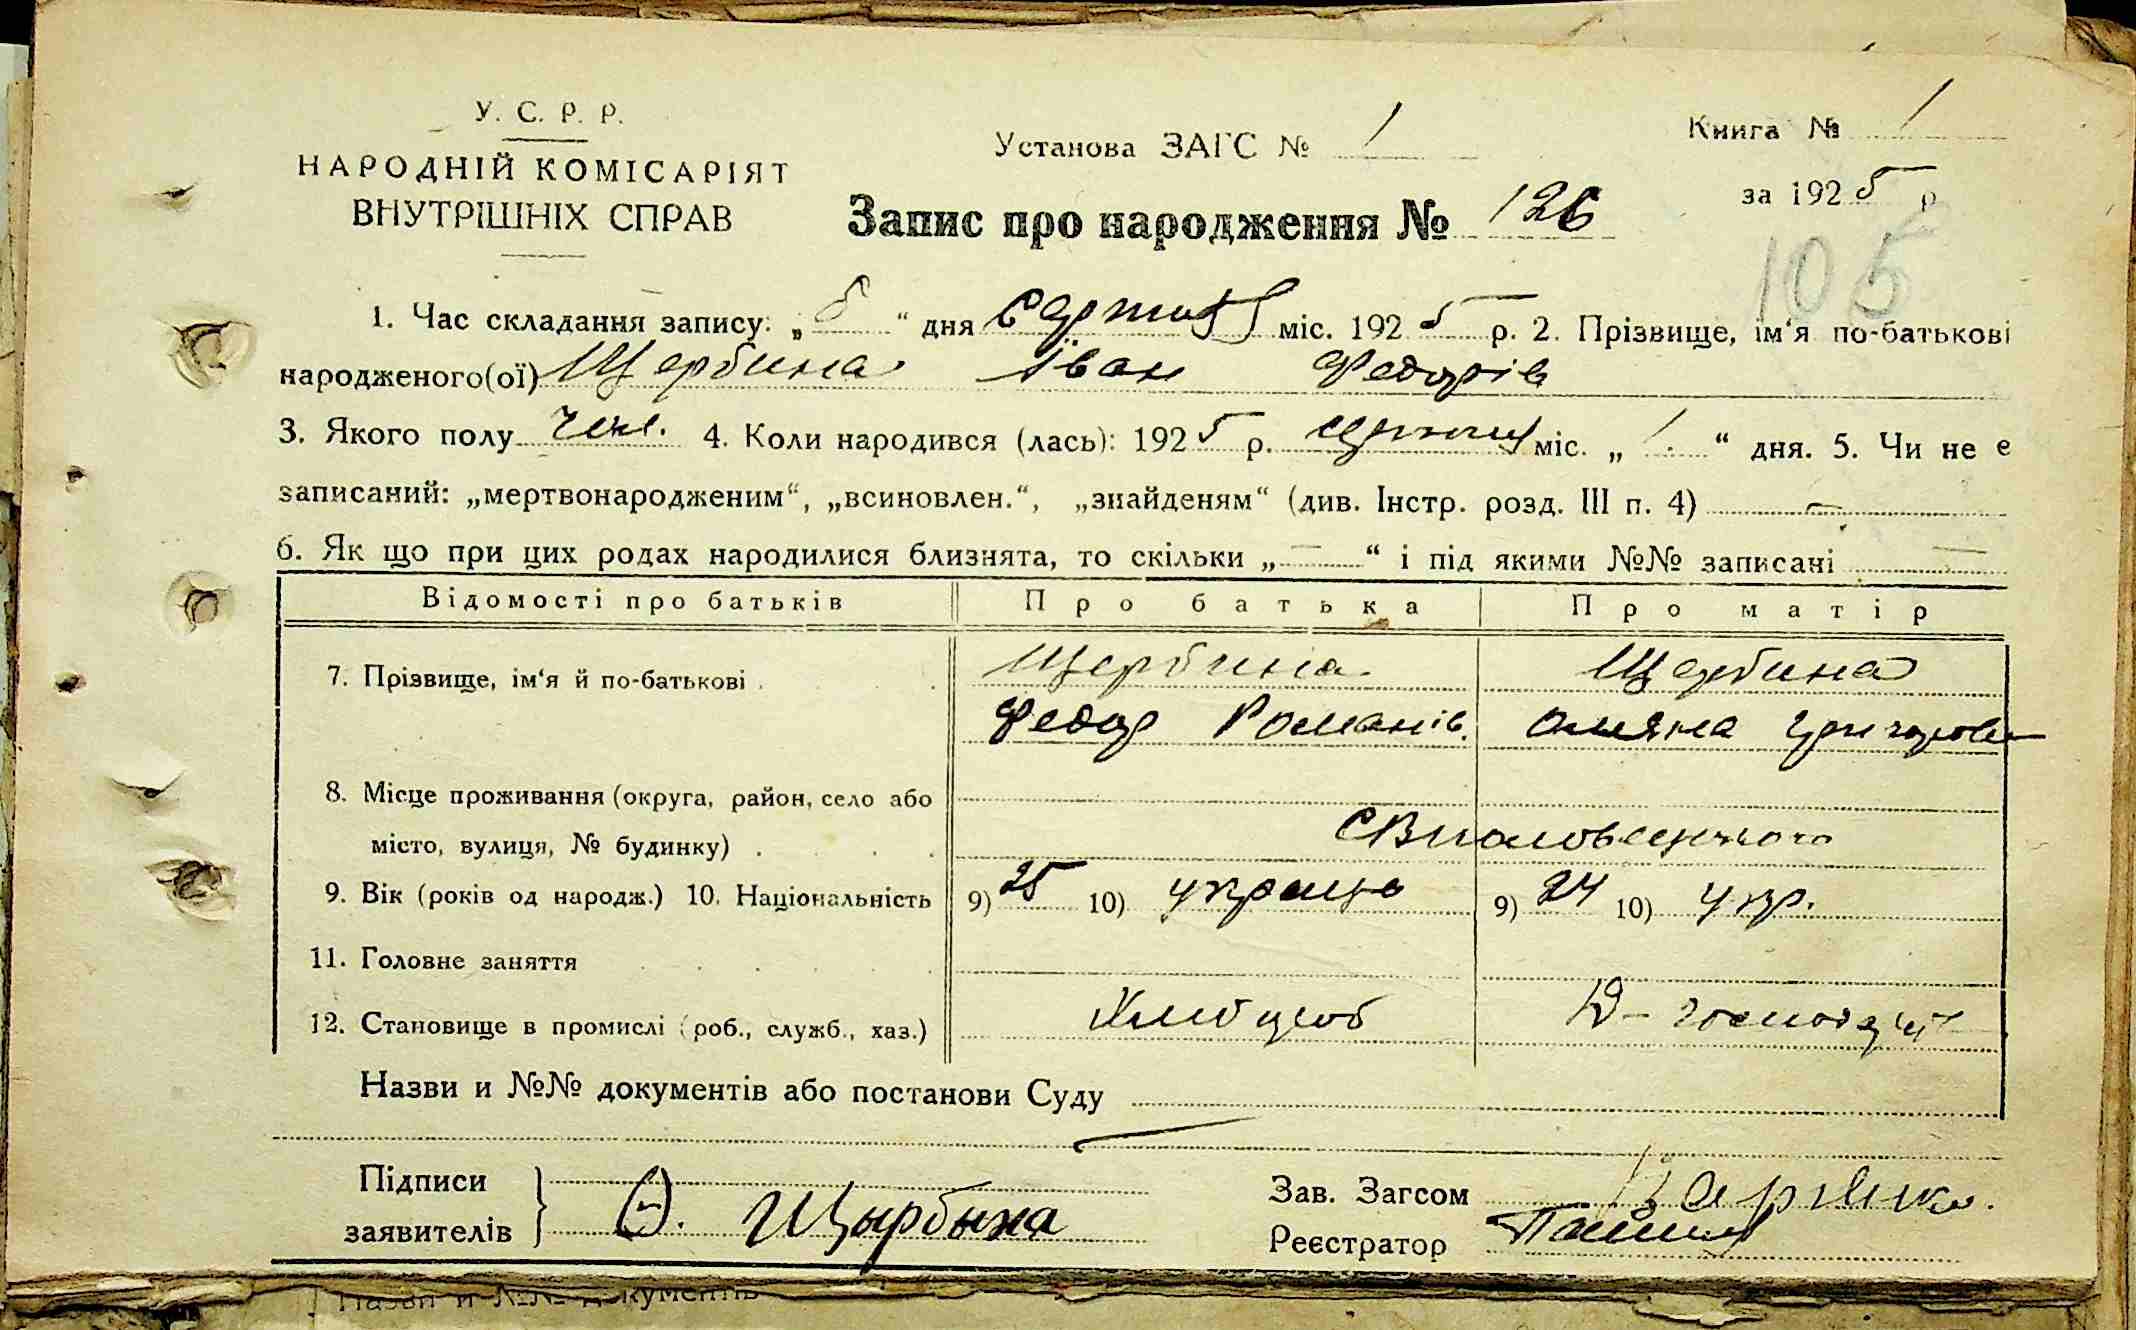 У. С. Р. Р.
НАРОДНІЙ КОМІСАРІЯТ
ВНУТРІШНІХ СПРАВ
Установа ЗАГС № 1
Книга № 1
за 1925 р
Запис про народження № 126
105
1. Час складання запису: „ “ дня Серпня міс. 1925 р. 2. Прізвище, ім‘я по-батькові
народженого(ої) Щербина Іван Федорів
3. Якого полу чол. 4. Коли народився (лась): 1925 р. серпня міс. „ 1 “ дня. 5. Чи не є
записаний: „мертвонародженим“, „всиновлен.“, „знайденям“ (див. Інстр. розд. III п. 4) —
6. Як що при цих родах народилися близнята, то скільки „ — “ і під якими №№ записані —
Відомості про батьків Про батька Про матір
7. Прізвище, ім‘я й по-батькові . Щербина Щербина
Федор Романів. Григорова
8. Місце проживання (округа, район, село або
місто, вулиця, № будинку) .
9. Вік (років од народж.) 10. Національність 9) 25 10) українс 9) 24 10) укр.
11. Головне заняття
12. Становище в промислі (роб., служб., хаз.) Хлібороб
Назви и №№ документів або постанови Суду
Підписи
заявителів } Ѳ. Щырбына
Зав. Загсом
Реєстратор
Назви и №№ документів